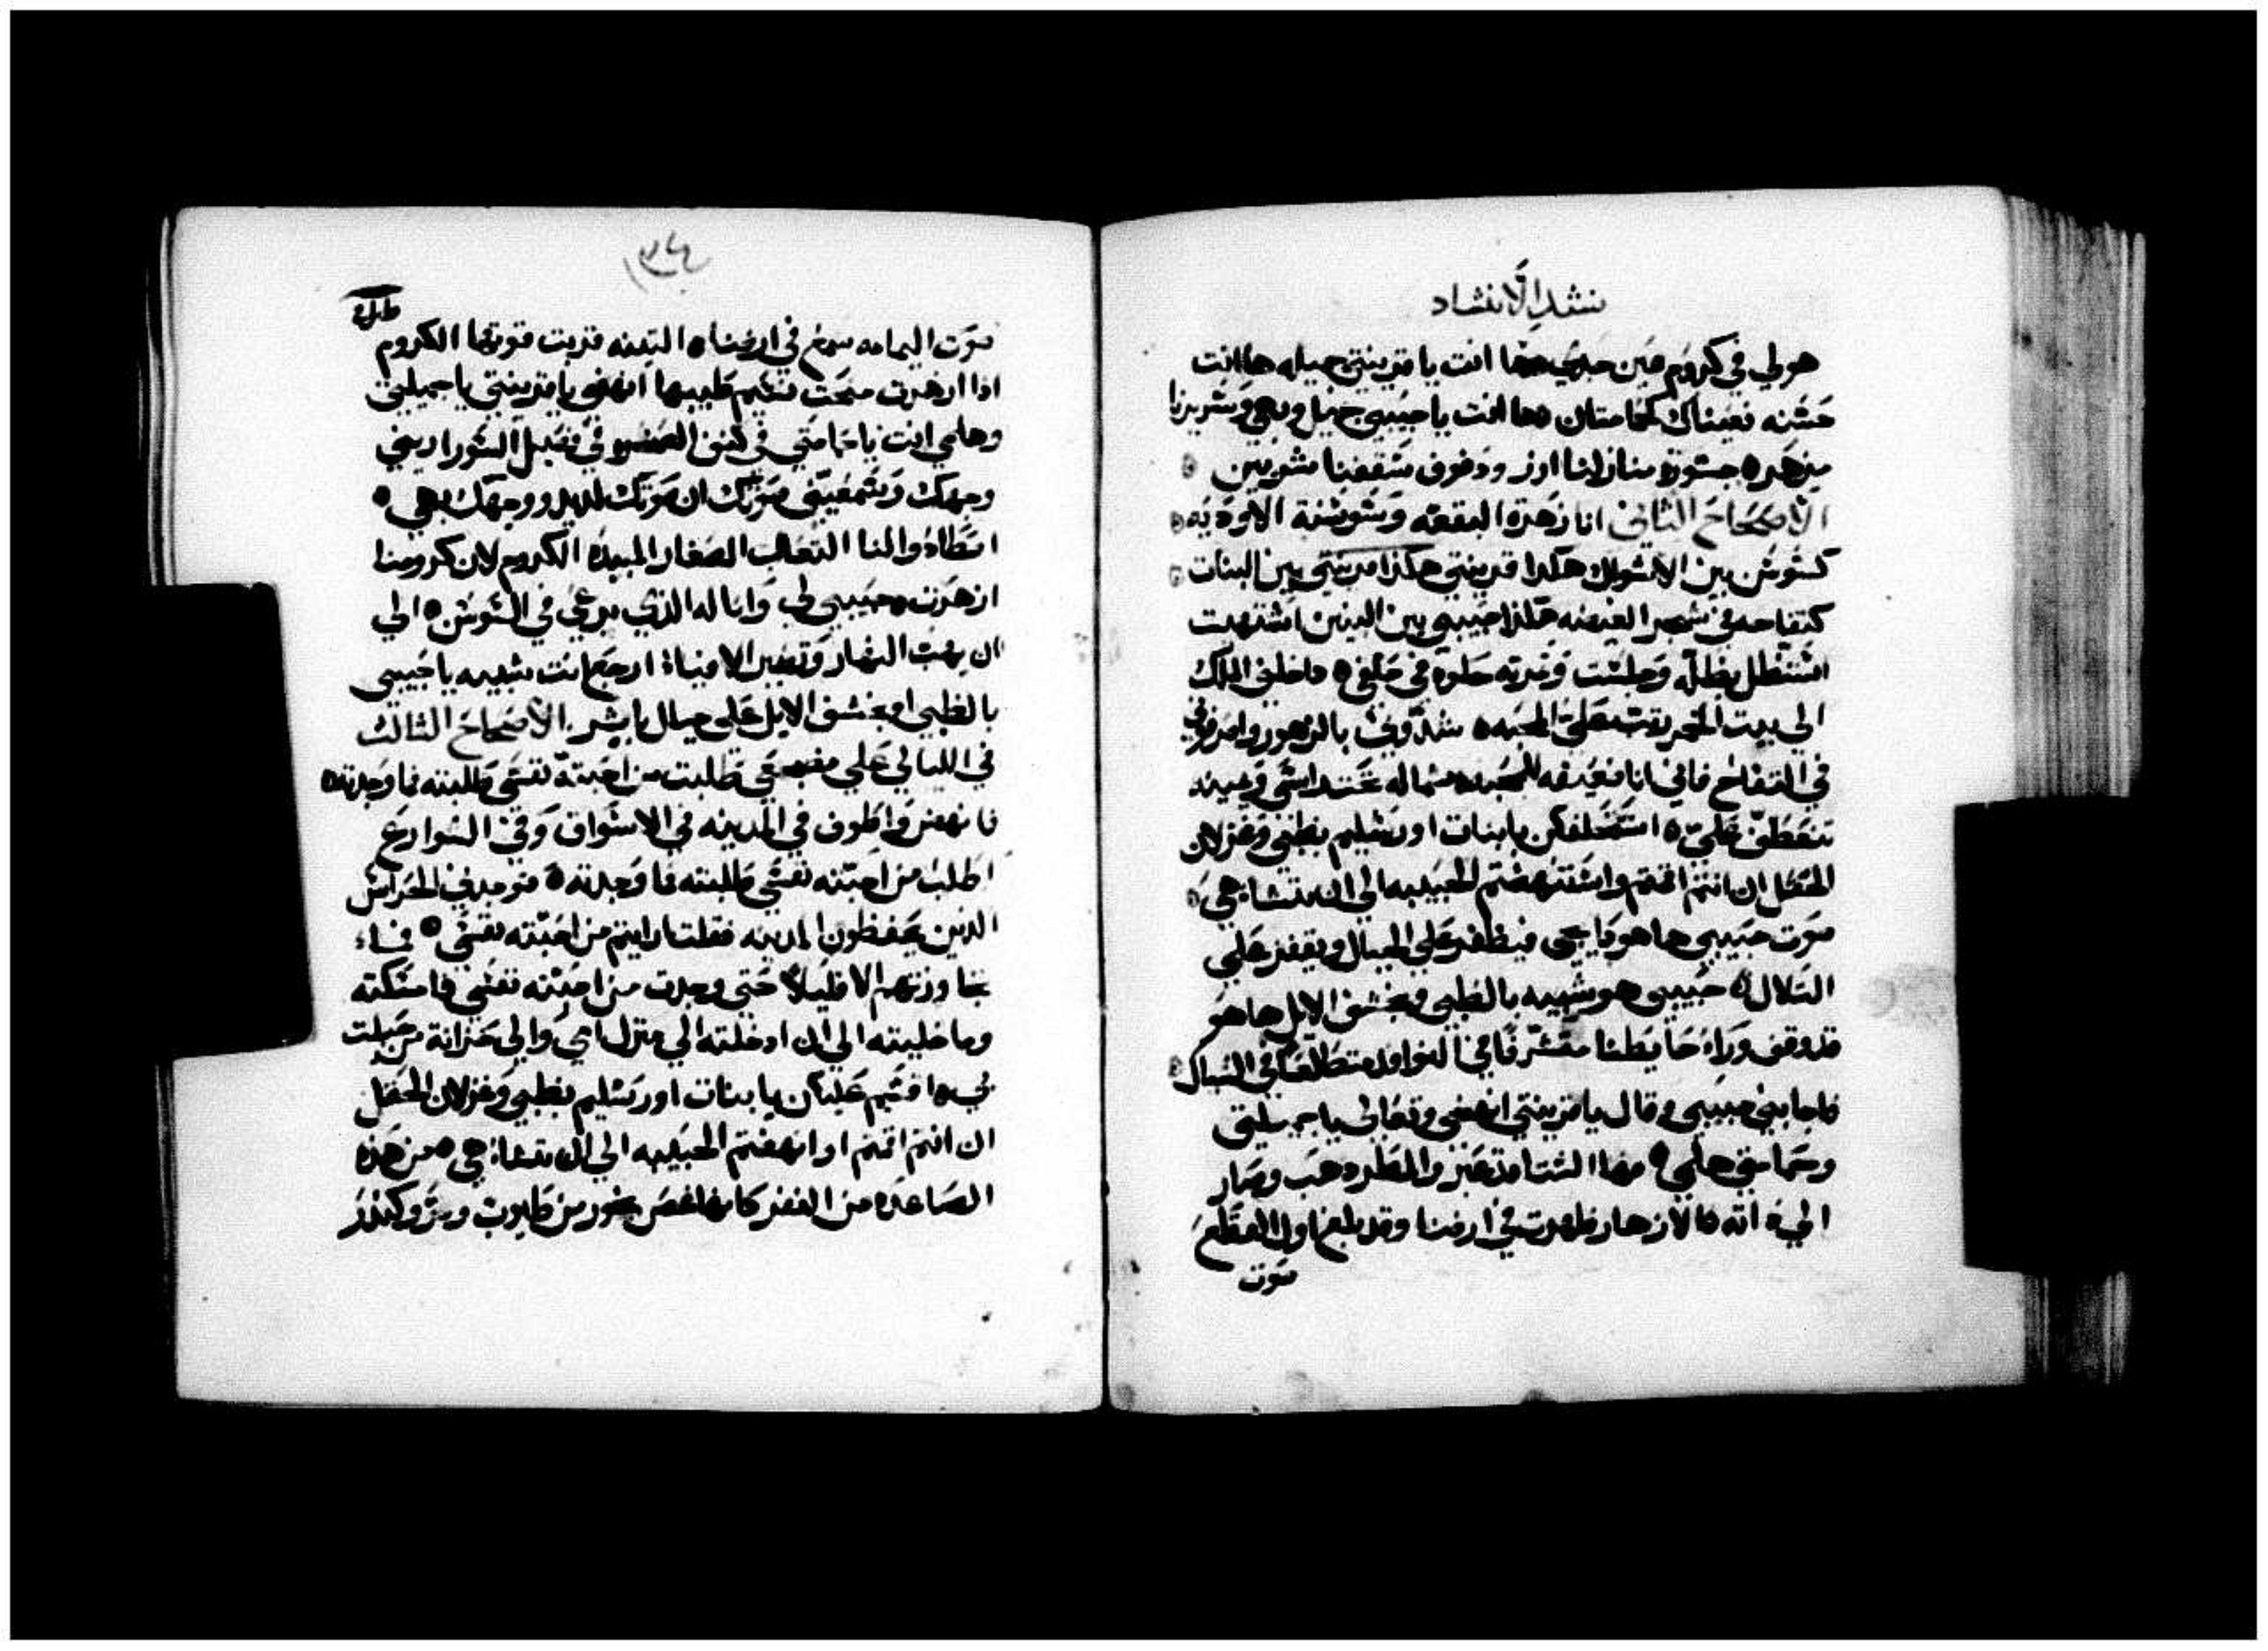 نشد الانشاد
هو لي في كروم عين جدي ها انت يا قرينتي جميله ها انت
حسنه فعيناك كحمامتان ها انت يا حبيبي جميل وبهي وسريرنا
مزهره جسورة منازلنا ارز ودفوف سقفنا سروبين
الاصحاح الثاني انا زهرة البقعه وسوسنة الاوديه
كسوسن بين الاشواك هكذا قرينتي بين البنات
كتفاحه في شجر الغيضه هكذا حبيبي بين البنين اشتهيت
استظل بظله وجلست وثمرته حلوه في حلقي ادخلني الملك
الي بيت الخمر رتب علي المحبه سندوني بالزهور واصرفوني
في التفاح فاني انا ضعيفه المحبه شماله تحت راسي ويمينه
تتعطف علي استحلفكن يا بنات اورشليم بظبي وغزلان
الحقل ان انتم اقمتم وانهضتم الحبيبه الي ان تشا هي
صوت حبيبي ها هو ذا يجي فيطفر علي الجبال ويقفز علي
التلال حبيبي هو شبيه بالظبي وبخشف الايل ها هو
قد وقف وراء حايطنا متشرفا في النوافذ متطلعا في الشباك
فاجابني حبيبي وقال يا قرينتي انهضي وتعالي يا جميلتي
وحمامتي هلمي فها الشتا قد عبر والمطر ذهب وصار
الي ذاته فالازهار ظهرت في ارضنا وقد بلغ اول القطع
صوت
صوت اليمامه سمع في ارضنا التينه قربت قوتها الكروم
اذا ازهرت منحت نسيم طيبها انهضي يا قرينتي يا جميلتي
وهلمي انت يا حمامتي في كنف الصخره في قبل السور اريني
وجهك وتسمعيني صوتك ان صوتك لذيذ ووجهك بهي
اصطادوا لنا الثعالب الصغار المبيده الكروم لان كرومنا
ازهرت حبيبي لي وانا له الذي يرعي في السوسن الي
ان يهب النهار وتغيب الافياة ارجع انت شبيه يا حبيبي
بالظبي او بخشف الايل علي جبال باثير الاصحاح الثالث
في الليالي علي مضجعي طلبت من احبته نفسي طلبته فما وجدته
فانهض واطوف في المدينه في الاسواق وفي الشوارع
اطلب من احبته نفسي طلبته فما وجدته فوجدني الحراس
الذين يحفظون المدينه فقلت اراايتم من احبته نفسي فساء
تجاوزتهم الا قليلا حتي وجدت من احبته نفسي فامسكته
وما خليته الي ان ادخلته الي منزل امي والي خزانة من حبلت
بي اقسم عليكن يا بنات اورشليم بظبي وغزلان الحقل
ان انتم اقمتم او انهضتم الحبيبه الي ان تشاء هي من هذه
الصاعده من القفر كانها غصن بخور من طيوب ومر وكندر